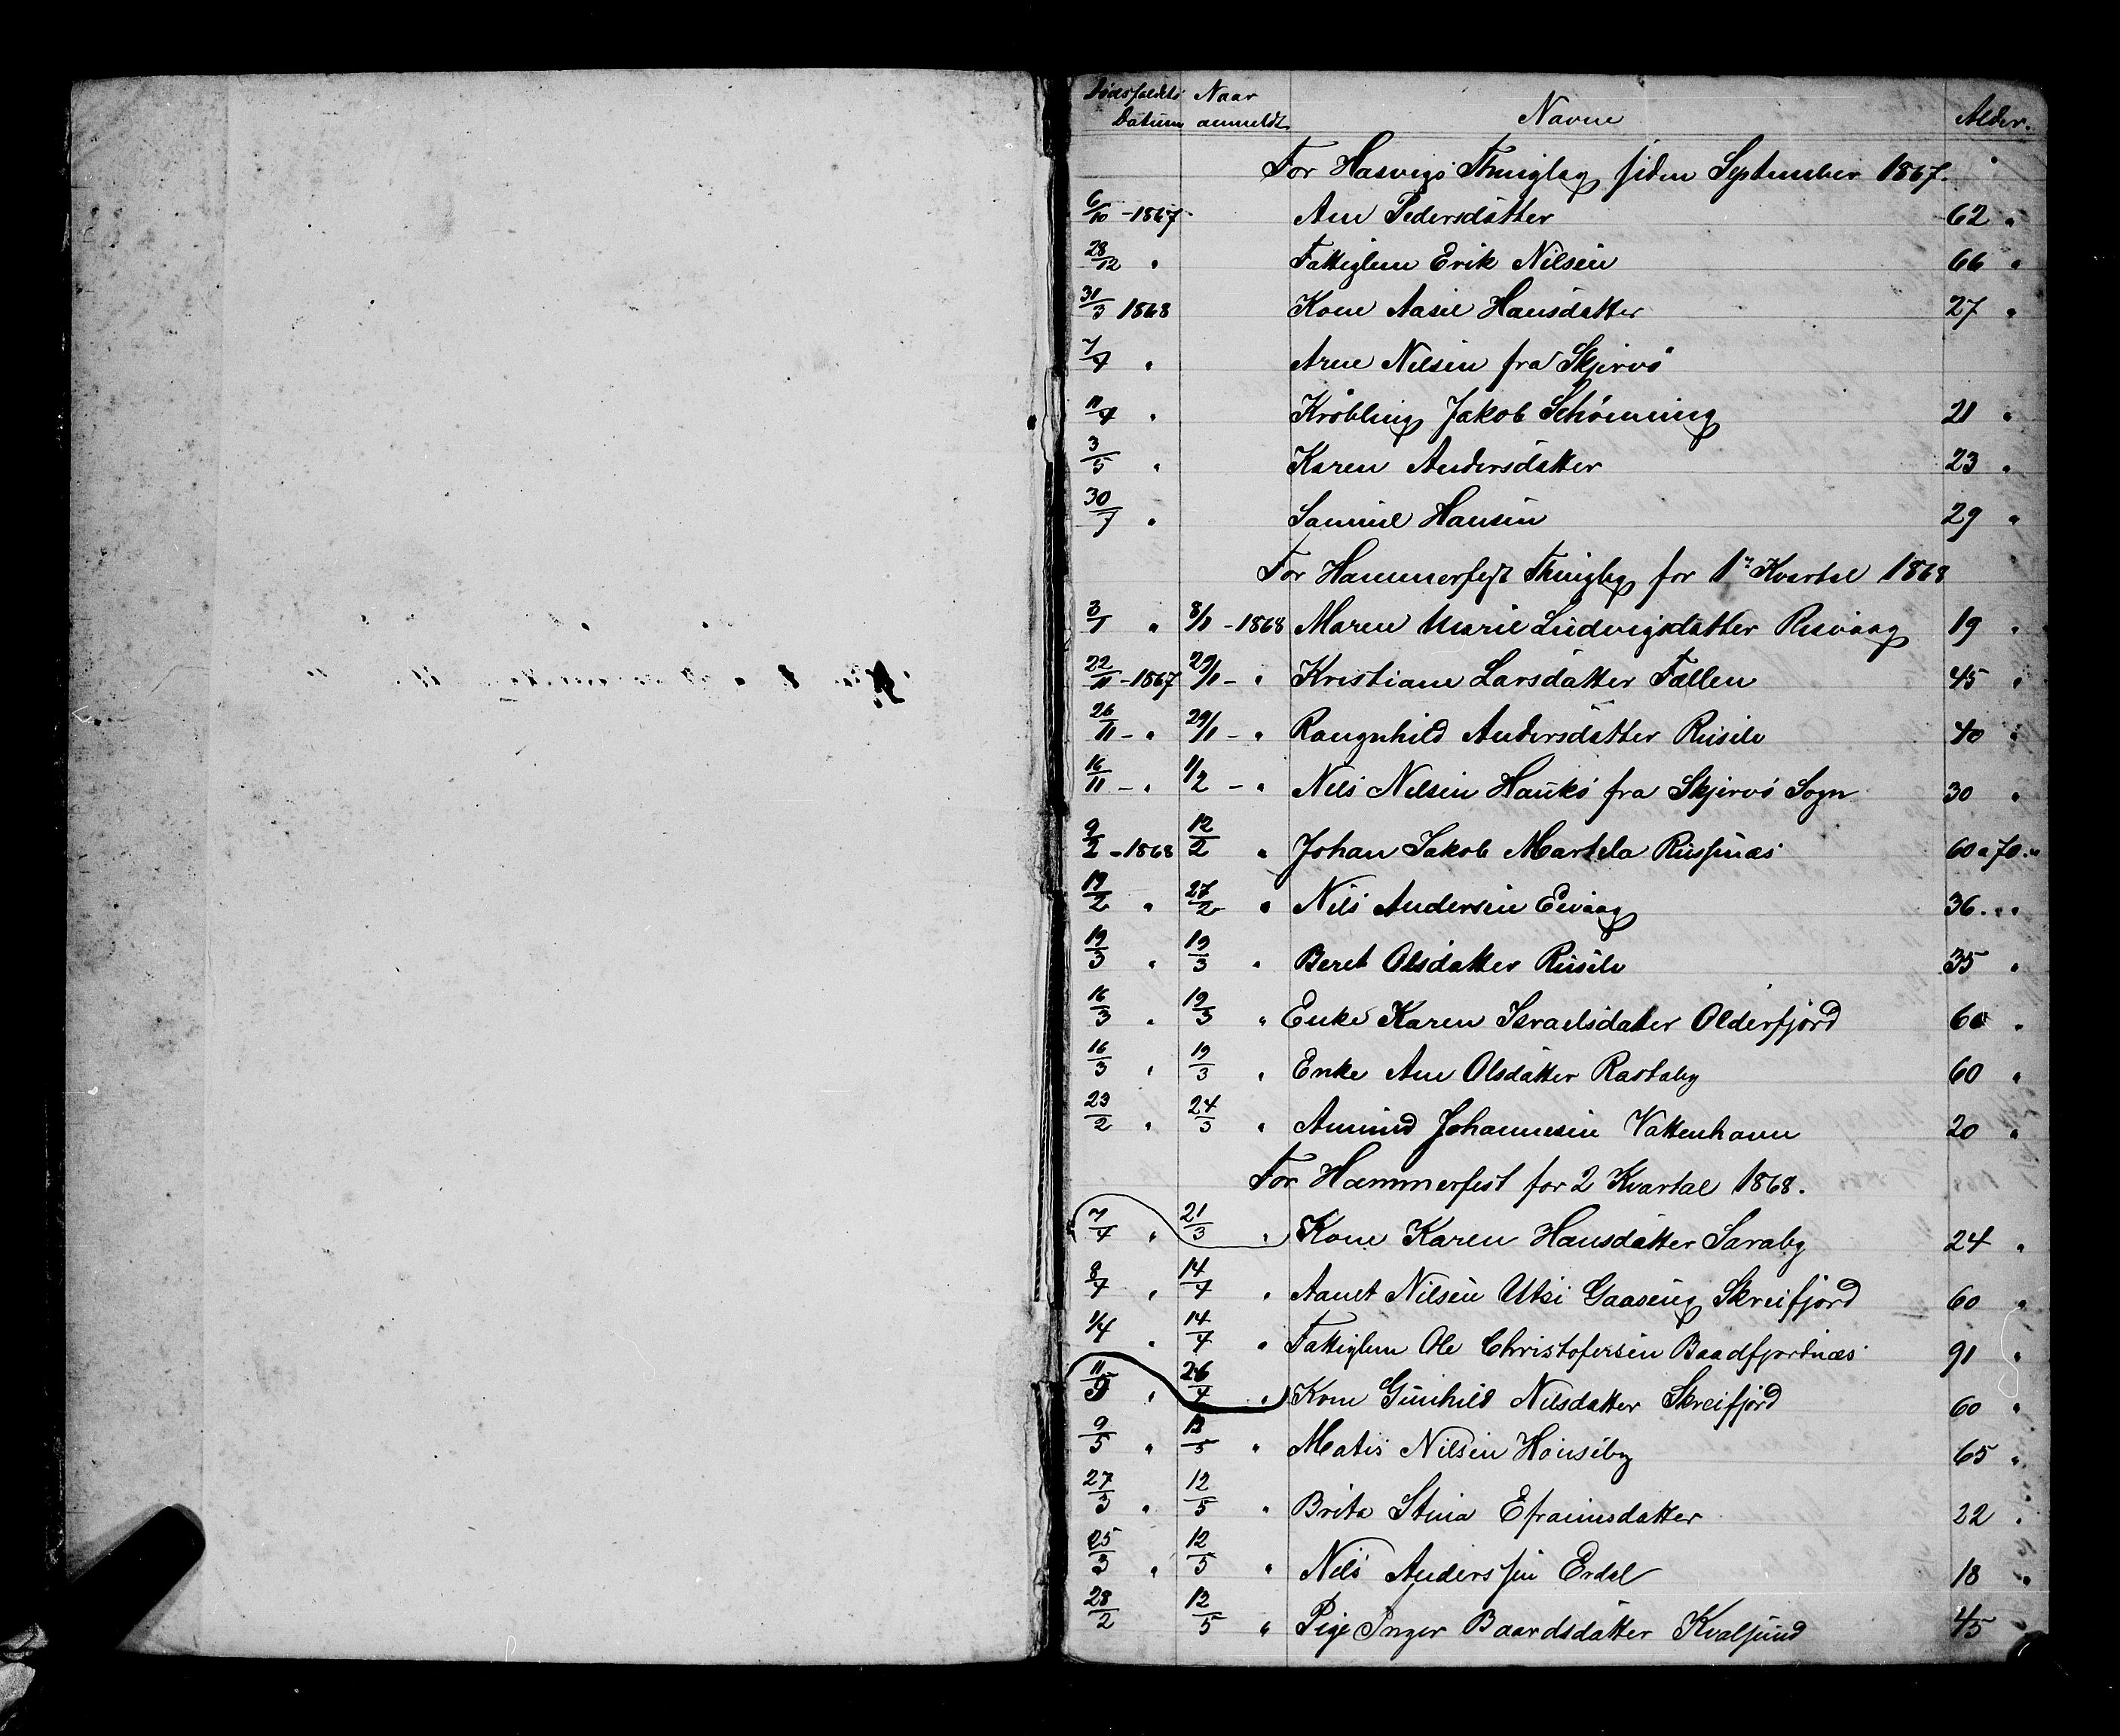 Dødsfaldets Naar
Datum anmeldt Navne Alder.
For Hasvigs Thinglag siden September 1867.
6/10 - 1867 Ane Pedersdatter 62 "
28/12 " Fattiglem Erik Nilsen 66 "
31/3 1868 Kone Aasie Hansdatter 27 "
7/4 " Arne Nilsen fra Skjervø
11/4 " Krøbling Jakob Schønning 21 "
3/5 " Karen Andersdatter 23 "
30/7 " Samuel Hansen 29 "
For Hammerfest Thinglag for 1ste Kvartal 1868
3/1 " 8/1 - 1868 Maren Marie Ludvigsdatter Risvaag 19 "
22/11 - 1867 29/1 - " Kristiane Larsdatter Fallen 45 "
26/11 - " 29/1 - " Rangnhild Andersdatter Russelv 40 "
16/11 - " 1/2 - " Nils Nilsen Haukø fra Skjervø Sogn 30 "
9/2 - 1868 12/2 " Johan Jakob Martela Russenæs 60 a 70 "
19/2 " 27/2 " Nils Andersen Eivaag 36 "
19/3 " 19/3 " Beret Olsdatter Russelv 35 "
16/3 " 19/3 " Enke Karen Israelsdatter Olderfjord 60 "
16/3 " 19/3 " Enke Ane Olsdatter Rastaby 60 "
23/2 " 24/3 " Amund Johannesen Vattenhavn 20 "
For Hammerfest for 2 Kvartal 1868.
7/4 " 21/3 " Kone Karen Hansdatter Saraby 24 "
8/4 " 14/4 " Aanet Nilsen Utsi Gaaseng Skreifjord 60 "
1/4 " 14/4 " Fattiglem Ole Christofersen Baadfjordnæs 91 "
11/5 " 26/4 " Kone Gunhild Nilsdatter Skreifjord 60 "
9/5 " 12/5 " Matis Nilsen Hønseby 65 "
27/3 " 12/5 " Brita Stina Efraimsdatter 22 "
25/3 " 12/5 " Nils Anderssen Erdal 18 "
28/2 12/5 " Pige Inger Baardsdatter Kvalsund 45